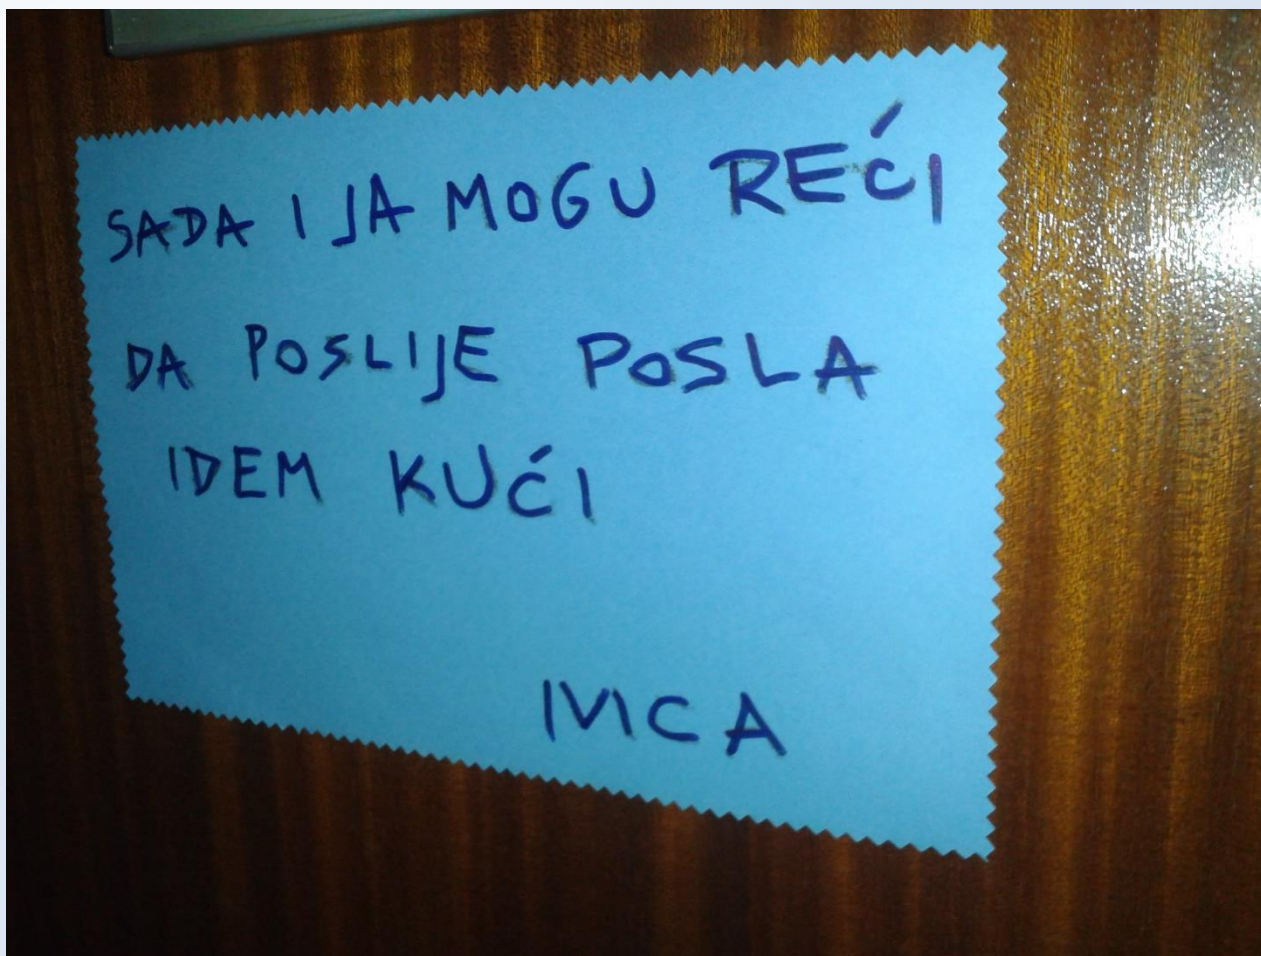 SADA I JA MOGU REĆI
DA POSLIJE POSLA
IDEM KUĆI
IVICA